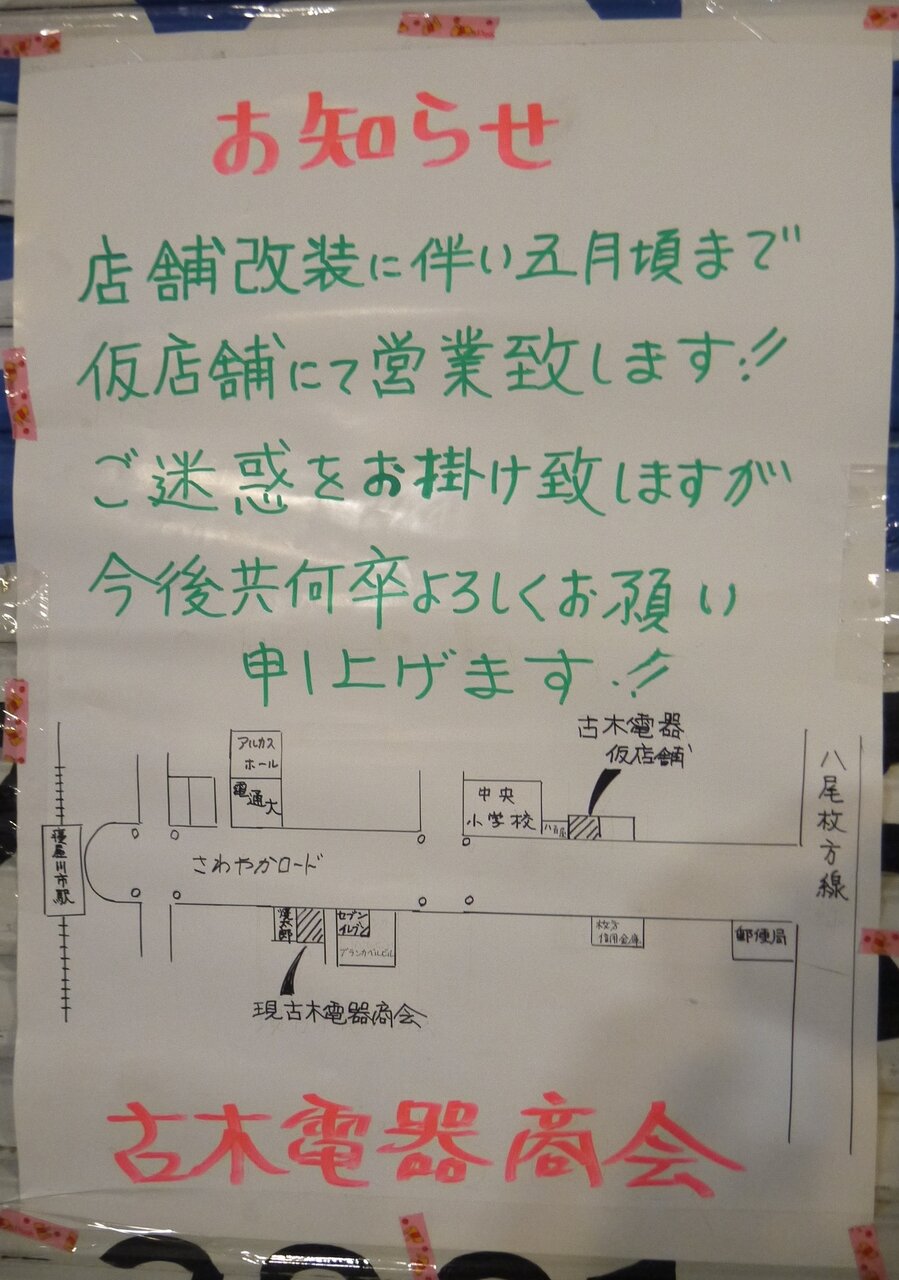 お知らせ
店舗改装に伴い五月頃まで
仮店舗にて営業致します!!
ご迷惑をお掛け致しますが
今後共何卒よろしくお願い
申し上げます!!
古木電器
仮店舗
アルカス
ホール
電通大
中央
小学校
八百屋
八尾枚方線
寝屋川市駅
さわやかロード
焼太郎
セブン
イレブン
ブランカベルビル
枚方
信用金庫
郵便局
現古木電器商会
古木電器商会